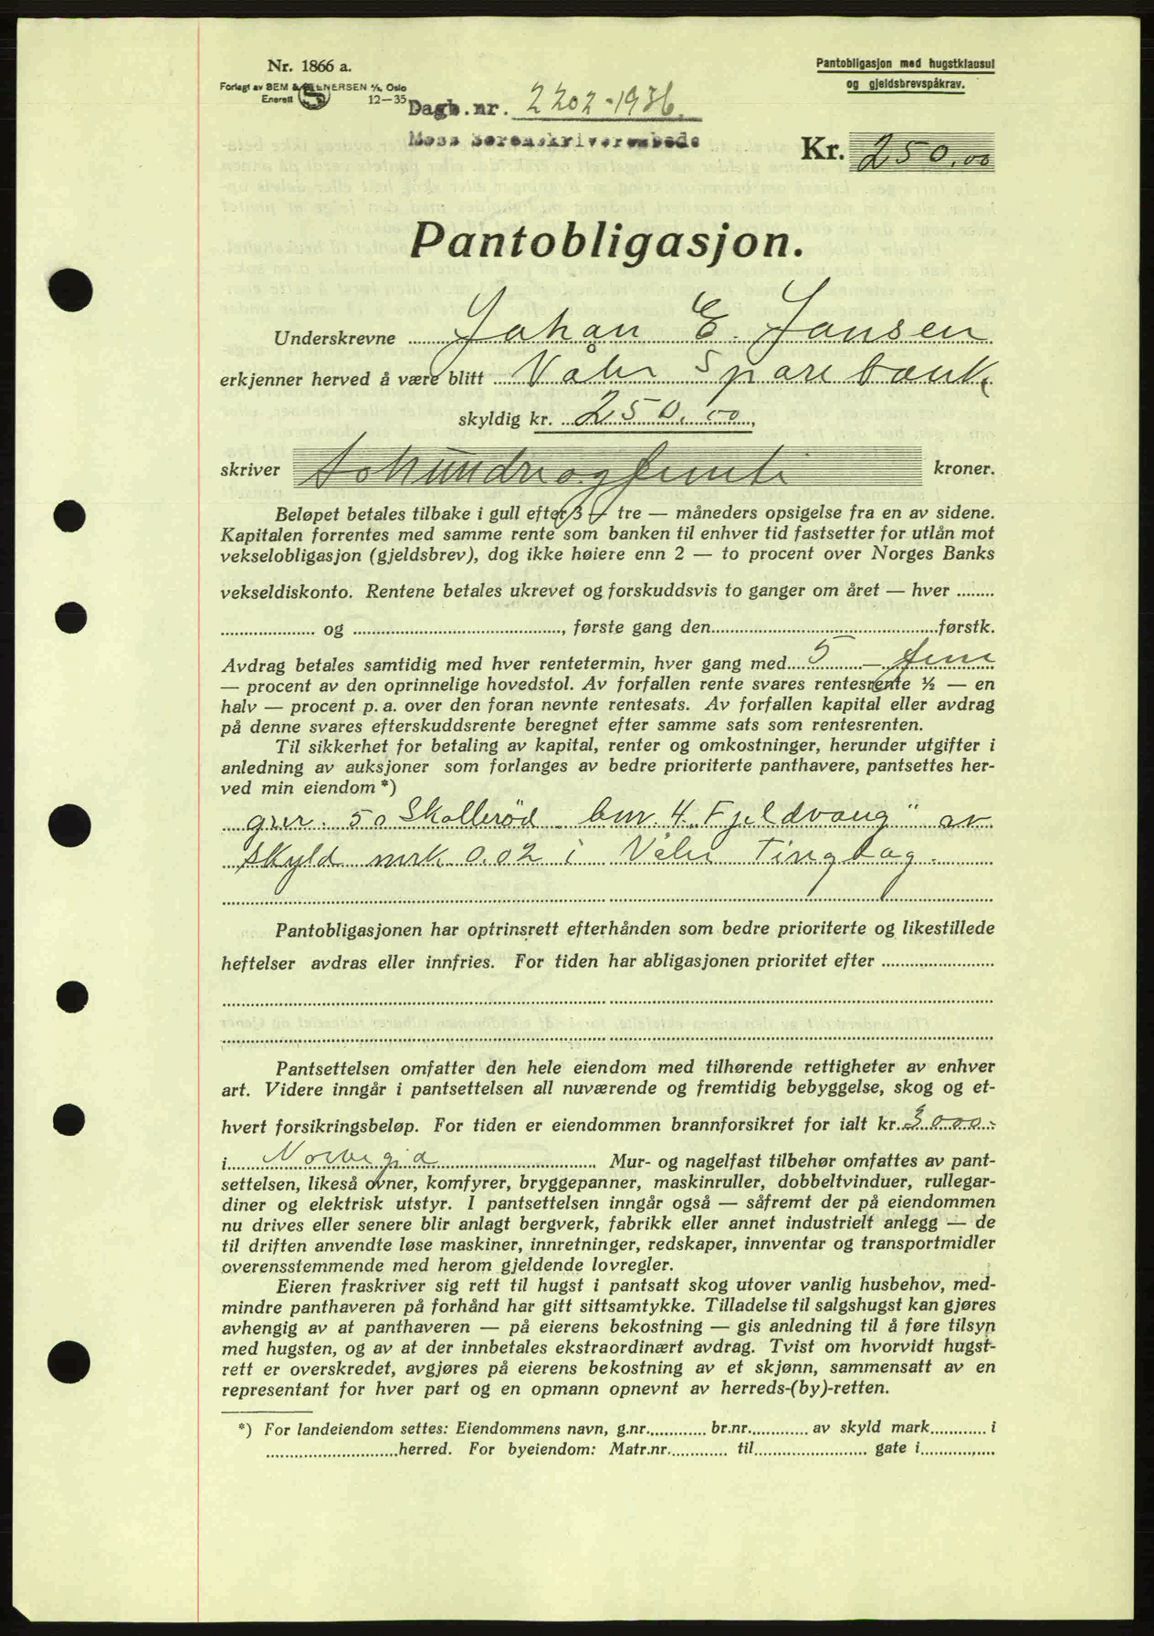 Nr. 1866 a.
Forlagt av SEM & STENERSEN A/S, Oslo
Enerett 12—35
Pantobligasjon med hugstklausul
og gjeldsbrevspåkrav.
Dagb.nr. 2202-1936.
Moss Sorenskriverembede
Kr. 250.00
Pantobligasjon.
Underskrevne Johan E. Jansen
erkjenner herved å være blitt Våler Sparebank,
skyldig kr. 250.00,
skriver tohundreogfemti kroner.
Beløpet betales tilbake i gull efter 3 — tre — måneders opsigelse fra en av sidene.
Kapitalen forrentes med samme rente som banken til enhver tid fastsetter for utlån mot
vekselobligasjon (gjeldsbrev), dog ikke høiere enn 2 — to procent over Norges Banks
vekseldiskonto. Rentene betales ukrevet og forskuddsvis to ganger om året — hver ........
.................... og ............................................, første gang den................................................førstk.
Avdrag betales samtidig med hver rentetermin, hver gang med 5 — fem
— procent av den oprinnelige hovedstol. Av forfallen rente svares rentesrente ½ — en
halv — procent p. a. over den foran nevnte rentesats. Av forfallen kapital eller avdrag
på denne svares efterskuddsrente beregnet efter samme sats som rentesrenten.
Til sikkerhet for betaling av kapital, renter og omkostninger, herunder utgifter i
anledning av auksjoner som forlanges av bedre prioriterte panthavere, pantsettes her-
ved min eiendom *)
gnr. 50 Skallerød bnr. 4 „Fjeldvang" av
skyld mrk 0.02 i Våler Tinglag.
Pantobligasjonen har optrinsrett efterhånden som bedre prioriterte og likestillede
heftelser avdras eller innfries. For tiden har abligasjonen prioritet efter ........................
Pantsettelsen omfatter den hele eiendom med tilhørende rettigheter av enhver
art. Videre inngår i pantsettelsen all nuværende og fremtidig bebyggelse, skog og et-
hvert forsikringsbeløp. For tiden er eiendommen brannforsikret for ialt kr. 3000.-
i Norvegia Mur- og nagelfast tilbehør omfattes av pant-
settelsen, likeså ovner, komfyrer, bryggepanner, maskinruller, dobbeltvinduer, rullegar-
diner og elektrisk utstyr. I pantsettelsen inngår også — såfremt der på eiendommen
nu drives eller senere blir anlagt bergverk, fabrikk eller annet industrielt anlegg — de
til driften anvendte løse maskiner, innretninger, redskaper, innventar og transportmidler
overensstemmende med herom gjeldende lovregler.
Eieren fraskriver sig rett til hugst i pantsatt skog utover vanlig husbehov, med-
mindre panthaveren på forhånd har gitt sittsamtykke. Tilladelse til salgshugst kan gjøres
avhengig av at panthaveren — på eierens bekostning — gis anledning til å føre tilsyn
med hugsten, og av at der innbetales ekstraordinært avdrag. Tvist om hvorvidt hugst-
rett er overskredet, avgjøres på eierens bekostning av et skjønn, sammensatt av en
representant for hver part og en opmann opnevnt av herreds-(by)-retten.
*) For landeiendom settes: Eiendommens navn, g.nr............. br.nr............. av skyld mark............ i
............................herred. For byeiendom: Matr.nr............ til........................ gate i................